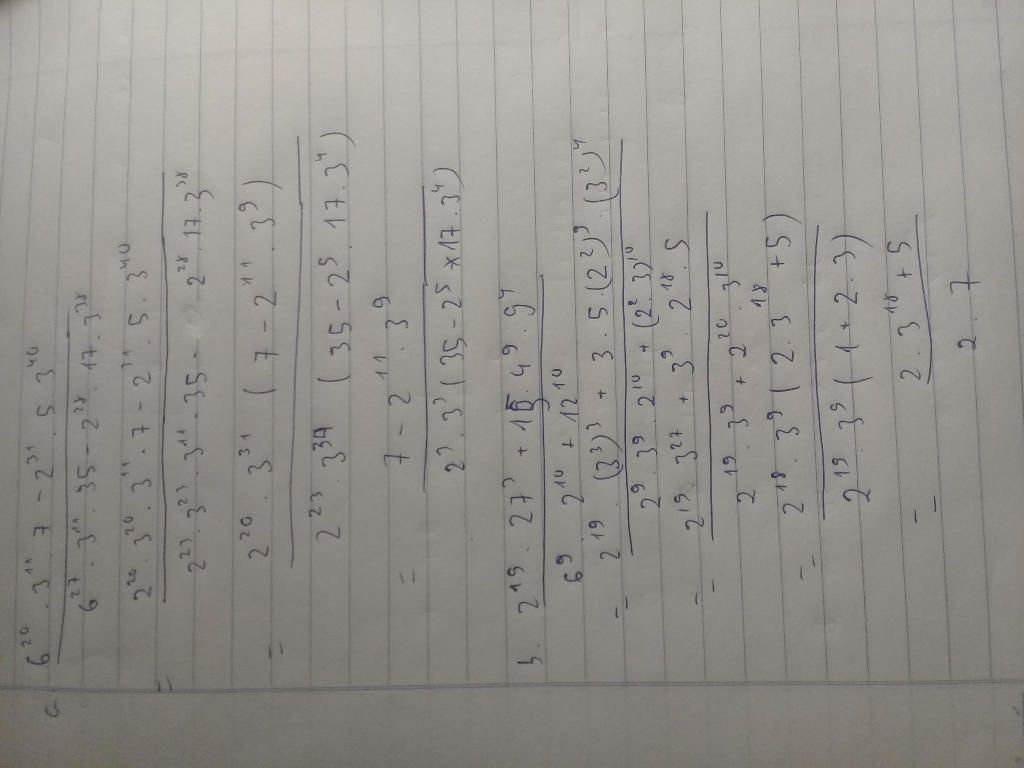 a. 6²⁰ . 3¹¹ . 7 - 2³¹ . 5 . 3⁴⁰
6²⁷ . 3¹¹ . 35 - 2²⁸ . 17 . 3³⁸
= 2²⁰ . 3²⁰ . 3¹¹ . 7 - 2³¹ . 5 . 3⁴⁰
2²³ . 3²³ . 3¹¹ . 35 - 2²⁸ . 17 . 3³⁸
= 2²⁰ . 3³¹ ( 7 - 2¹¹ . 3⁹ )
2²³ . 3³⁴ ( 35 - 2⁵ . 17 . 3⁴ )
= 7 - 2¹¹ . 3⁹
2³ . 3³ ( 35 - 2⁵ × 17 . 3⁴ )
b. 2¹⁹ . 27³ + 15 . 4⁹ . 9⁴
6⁹ 2¹⁰ + 12¹⁰
= 2¹⁹ . (3³)³ + 3 . 5 . (2²)⁹ . (3²)⁴
2⁹ . 3⁹ . 2¹⁰ + (2² . 3)¹⁰
= 2¹⁹ . 3²⁷ + 3⁹ . 2¹⁸ . 5
2¹⁹ . 3⁹ + 2²⁰ . 3¹⁰
= 2¹⁸ . 3⁹ ( 2 . 3¹⁸ + 5 )
2¹⁹ . 3⁹ ( 1 + 2 . 3 )
= 2 . 3¹⁸ + 5
2 . 7